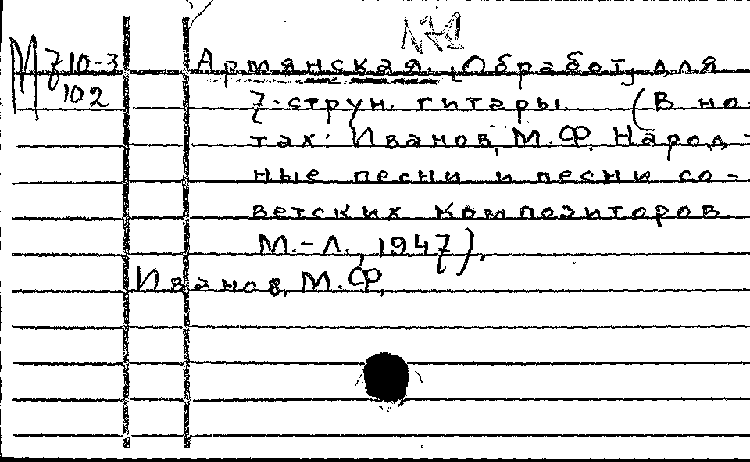 №2
М 710-3
102
Армянская. [Обработ] для
7-струн. гитары. (В но-
тах: Иванов, М.Ф. Народ-
ные песни и песни со-
ветских композиторов
М.-Л., 1947).
Иванов, М.Ф.